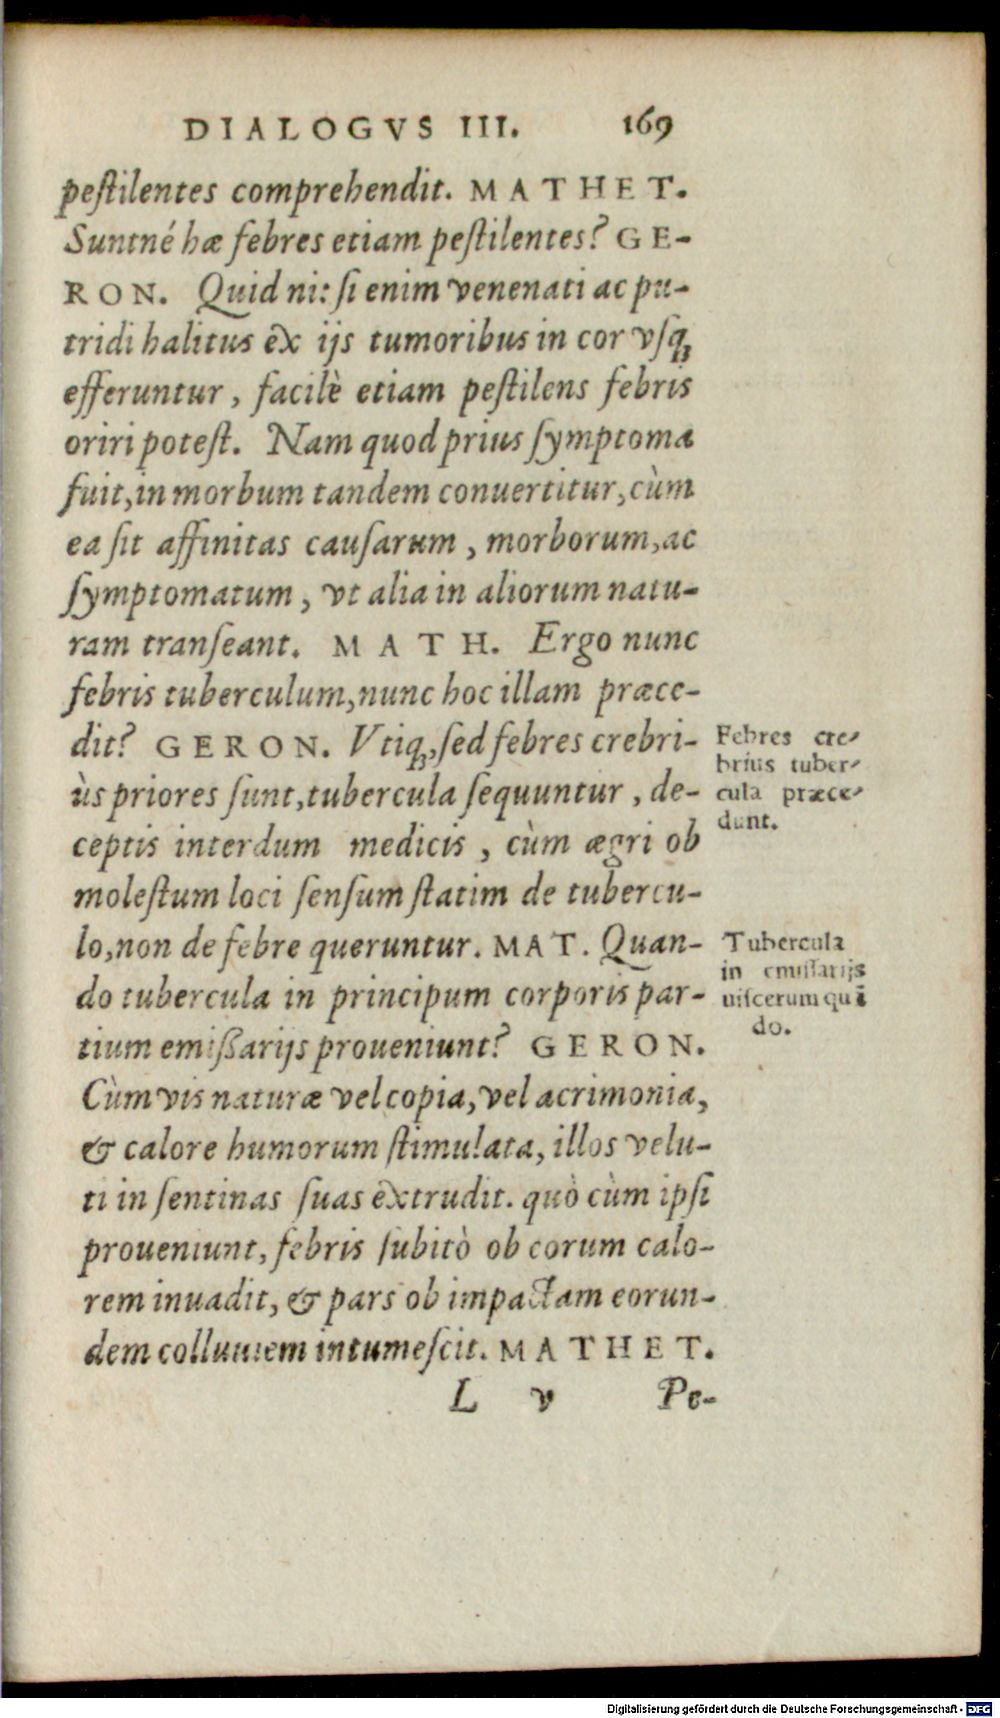 DIALOGVS III. 169
peſtilentes comprehendit. MATHET.
Suntné hæ febres etiam peſtilentes? GE-
RON. Quid ni: ſi enim venenati ac pu-
tridi halitus ex ijs tumoribus in cor vſq₃
efferuntur, facilè etiam peſtilens febris
oriri poteſt. Nam quod prius ſymptoma
fuit, in morbum tandem conuertitur, cùm
ea ſit affinitas cauſarum, morborum, ac
ſymptomatum, vt alia in aliorum natu-
ram tranſeant. MATH. Ergo nunc
febris tuberculum, nunc hoc illam præce-
dit? GERON. Vtiq₃, ſed febres crebri-
ùs priores ſunt, tubercula ſequuntur, de-
ceptis interdum medicis, cùm ægri ob
moleſtum loci ſenſum ſtatim de tubercu-
lo, non de febre queruntur. MAT. Quan-
do tubercula in principum corporis par-
tium emiſſarijs proueniunt? GERON.
Cùm vis naturæ vel copia, vel acrimonia,
& calore humorum ſtimulata, illos velu-
ti in ſentinas ſuas extrudit. quò cùm ipſi
proueniunt, febris ſubitò ob eorum calo-
rem inuadit, & pars ob impactam eorun-
dem colluuiem intumeſcit. MATHET.
L v Pe-
Febres cre-
brius tuber-
cula præce-
dunt.
Tubercula
in emiſſarijs
uiſcerum quā
do.
Digitalisierung gefördert durch die Deutsche Forschungsgemeinschaft - DFG